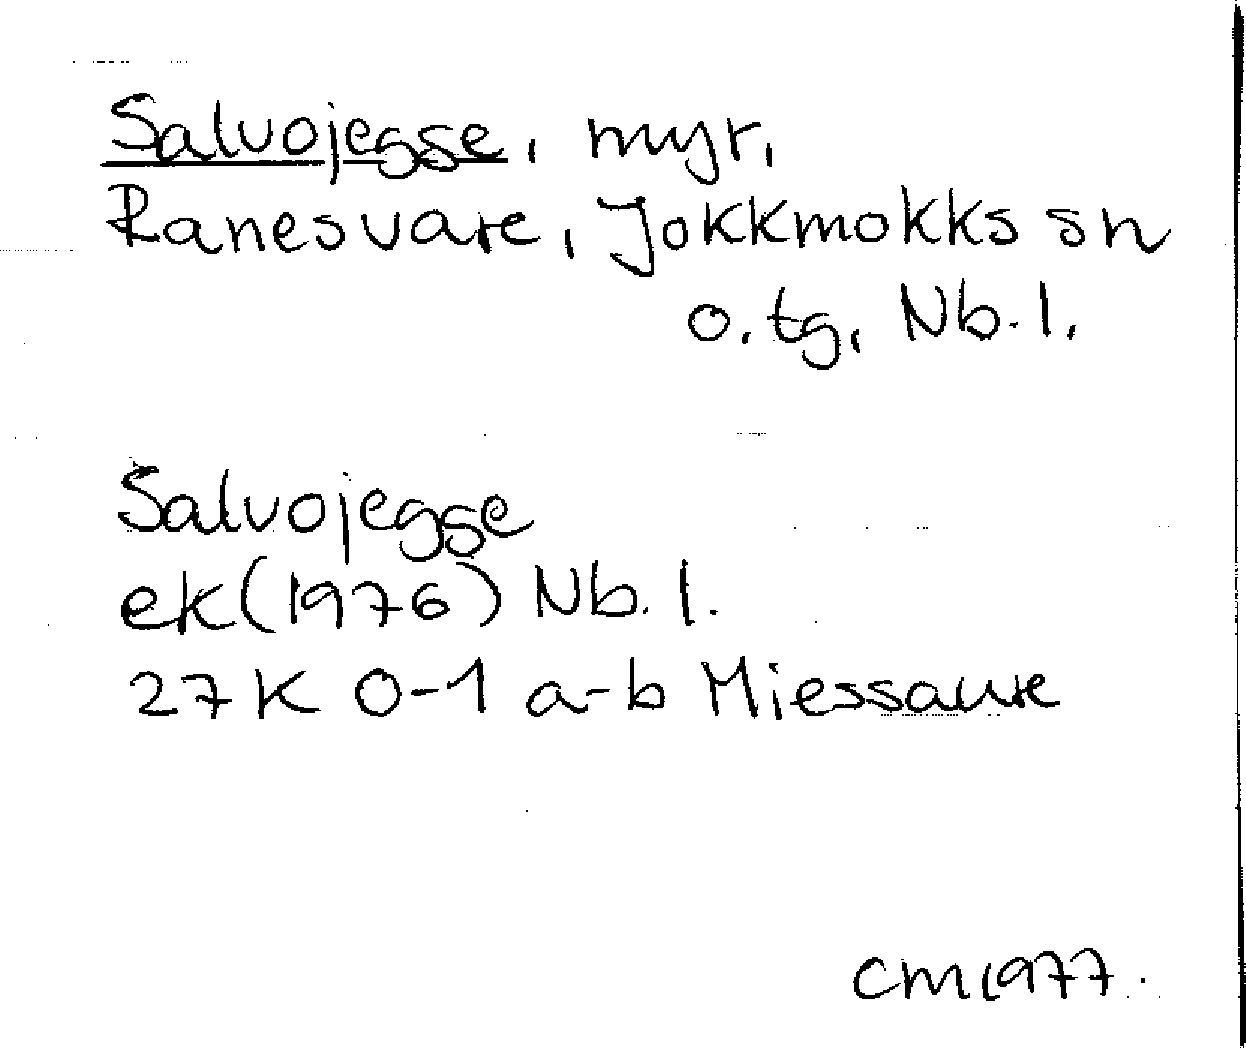 Salvojegse, myr,
Ranesvare, Jokkmokks sn
o. tg, Nb. l.
Salvojegse
ek (1976) Nb. l.
27 K 0-1 a-b Miessaure
CM 1977.